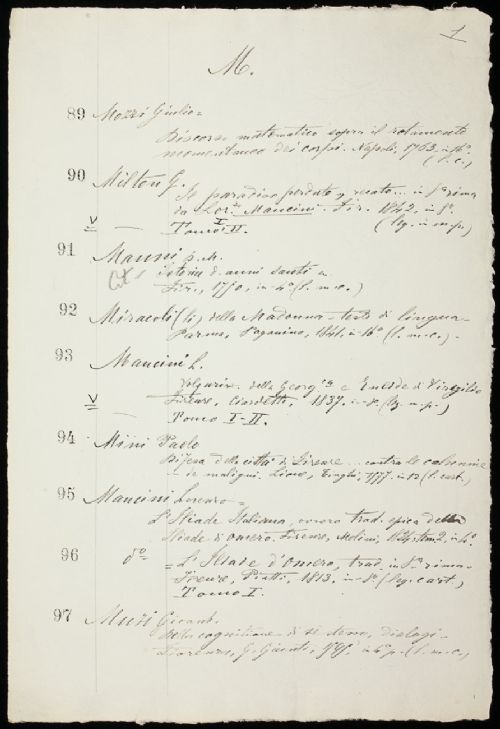 1
M.
89 Mozzi Giulio =
Discorso matematico sopra il rotamento
momentaneo dei corpi. Napoli, 1763, in 4º.
(l. c.)
90 Milton G.
Il paradiso perduto, recato ... in 8ª rima
da Lor.º Mancini. Fir. 1842, in 8º.
V — Tomo I II. (leg. in m. p.)
91 Manni D. M.
Istoria di anni santi
Fir., 1750, in 4º (l. m. c.)
92 Miracoli (li) della Madonna - testo di lingua -
Parma, Paganino, 1841, in 16º (l. m. c.) -
93 Mancini L.
della Georg.ca e Eneide di Virgilio
Firenze, 1837. in 8º. (leg. m. p.)
V — Tomo I - II.
94 Mini Paolo
Difesa della città di Firenze ... contro le calunnie
de maligni. Lione, 1577. in 12 (l. cart.)
95 Mancini Lorenzo =
L'Iliade Italiana, ovvero trad. epica della
Iliade di Omero. Firenze, in 4º.
96 dº = L'Iliade d'Omero, trad. in 8ª rima -
Firenze, Piatti, 1818, in 8º. (leg. cart.)
Tomo I.
97 Muzi
Della cognitione di se stesso, dialogi -
Fiorenza, G. Giunti, in 4º p. (l. m. c.)